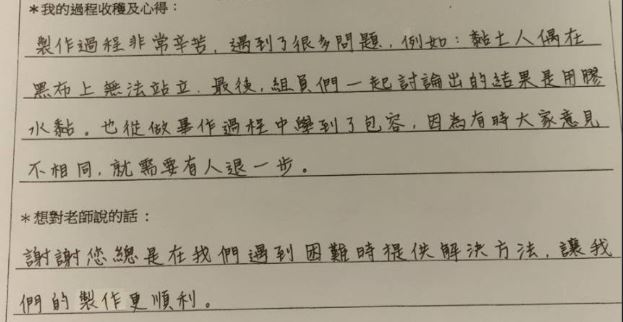 *我的過程收穫及心得：
製作過程非常辛苦，遇到了很多問題，例如：黏土人偶在
黑布上無法站立，最後，組員們一起討論出的結果是用膠
水黏。也從做畢作過程中學到了包容，因為有時大家意見
不相同，就需要有人退一步。
*想對老師說的話：
謝謝您總是在我們遇到困難時提供解決方法，讓我
們的製作更順利。